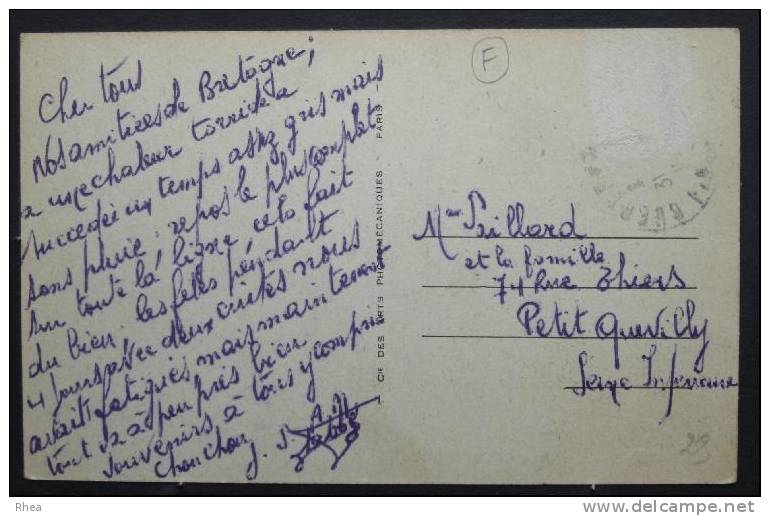 Cher tous
Nos amitiées de Bretagne ;
a une chaleur torride a
succedé un temps assez gris mais
sans pluie ; repos le plus complet
sur toute la ligne, cela fait
du bien. les fêtes pendant
4 jours avec deux cuites nous
avait fatigués mais maintenant
tout va à peu près bien
souvenirs à tous y compris
Chouchou
F
Mme Paillard
et la famille
74 Rue Thiers
Petit Quevilly
Seine Inferieure
23
CIE DES ARTS PHOTOMÉCANIQUES - PARIS
Rhea
www.delcampe.net